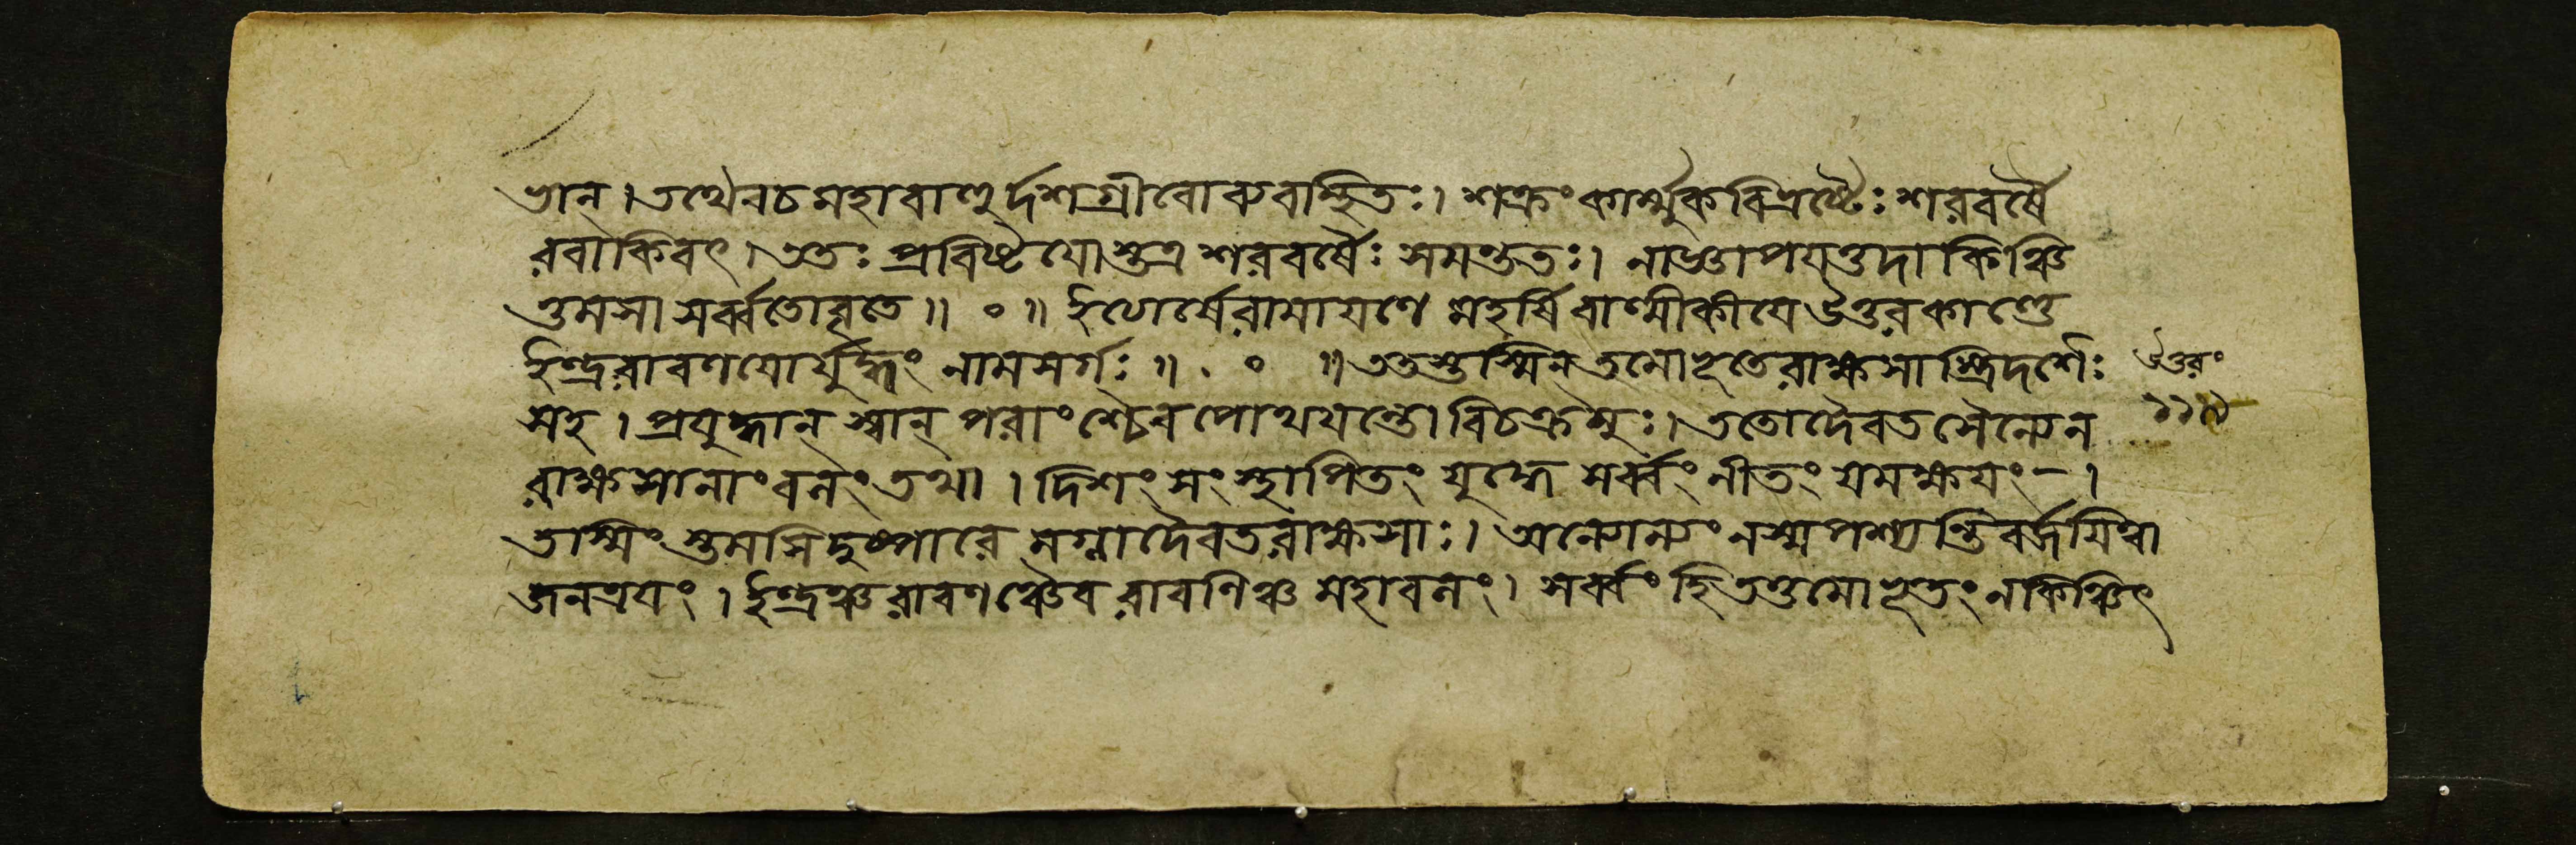 ভান্ । তথৈব চ মহাবাণুর্দশগ্রীবো ব্যবাস্থিতঃ । শক্রং কার্ম্মুকবিভ্রষ্টৈঃ শরবর্ষৈ
রবাকিরৎ । ততঃ প্রবিষ্টযোস্তত্র শরবর্ষৈঃ সমন্ততঃ । নাজ্ঞাপযত্তদা কিঞ্চি
ত্তমসা সর্ব্বতো বৃতে ॥ ० ॥ ইত্যার্ষে রামাযণে মহর্ষিবাল্মীকীযে উত্তরকাণ্ডে
ইন্দ্ররাবণযোর্যুদ্ধং নাম সর্গঃ ॥ . ० ॥ ততস্তস্মিন্ তমোভূতে রাক্ষসাস্ত্রিদশৈঃ
সহ । প্রযুদ্ধান্ স্বান্ পরাংশ্চৈব পোথযন্তো বিচক্রমুঃ । ততো দৈবতসৈন্যেন
রাক্ষসানাং বলং তথা । দিশং সংস্থাপিতং যুদ্ধে সর্ব্বং নীতং যমক্ষযং - ।
তস্মিং স্তমসি দুষ্পারে মগ্না দৈবতরাক্ষসাঃ । অন্যোন্যং ন স্ম পশ্যন্তি বর্জযিত্বা
জনত্রযং । ইন্দ্রঞ্চ রাবণঞ্চৈব রাবণিঞ্চ মহাবলং । সর্ব্বং হি তত্তমোভূতং ন কিঞ্চিৎ
উত্তরং